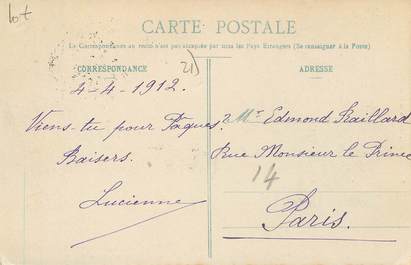 lot
CARTE POSTALE
La Correspondance au recto n'est pas acceptée par tous les Pays Etrangers (Se renseigner à la Poste)
CORRESPONDANCE
21)
ADRESSE
4-4-1912.
Viens-tu pour Pâques?
Baisers.
Lucienne
Mr Edmond Raillard
Rue Monsieur le Prince
14
Paris.